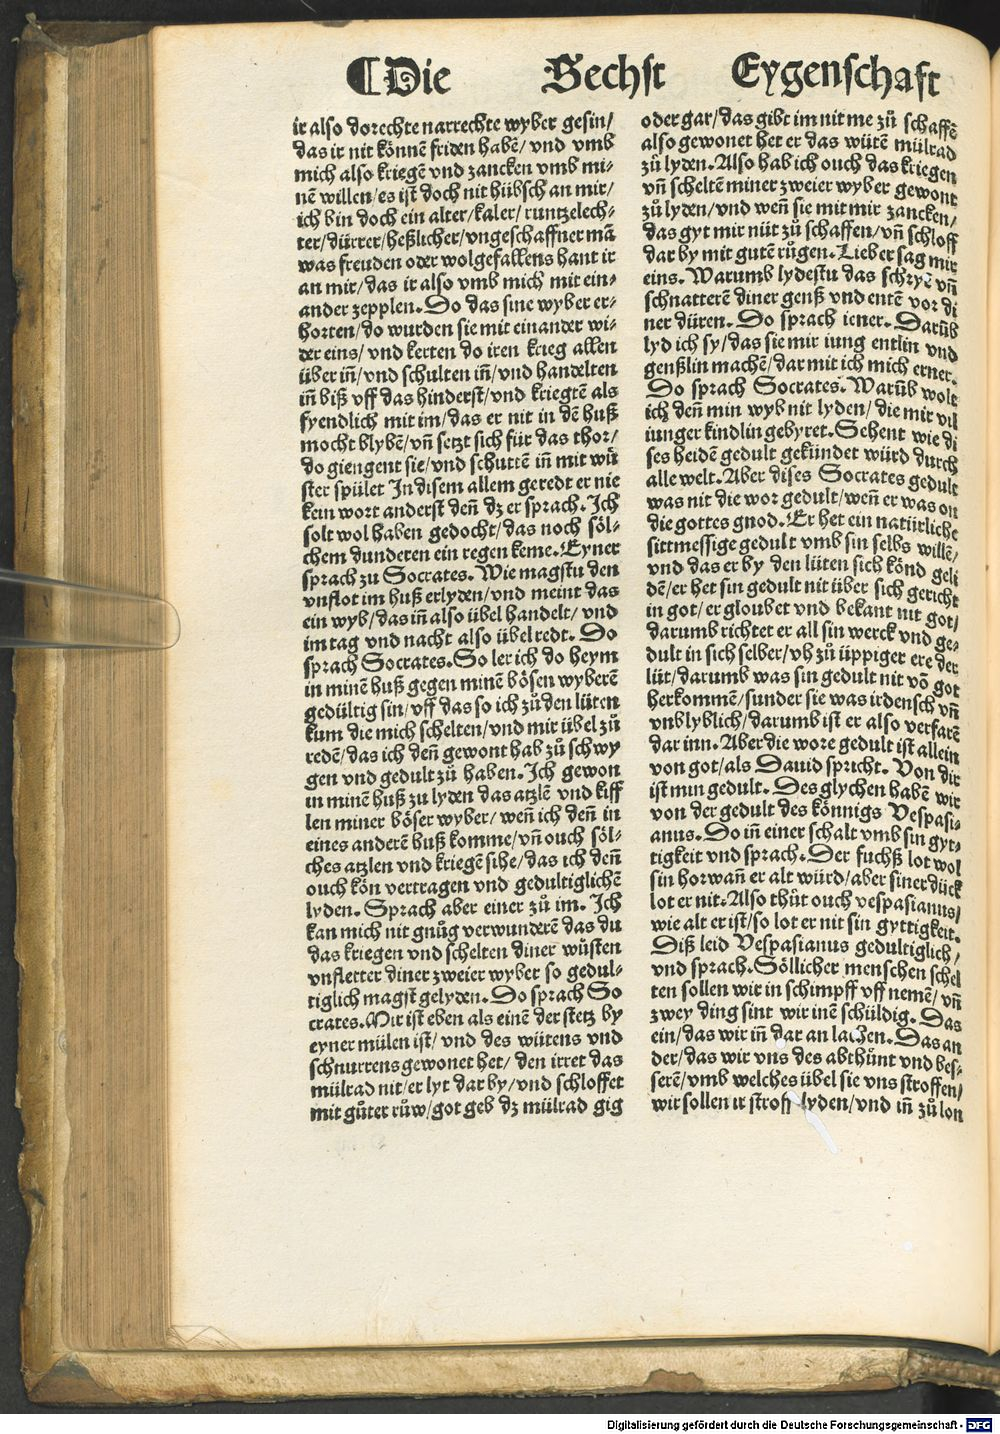 ¶Die Sechst Eygenschaft
ir also dorechte narrechte wyber gesin/
das ir nit könnē friden habē/ vnd vmb
mich also kriegē vnd zancken vmb mi⸗
nē willen/ es ist doch nit hübsch an mir/
ich bin doch ein alter/ kaler/ runtzelech⸗
ter/ dürrer/ heßlicher/ vngeschaffner mā
was freuden oder wolgefallens hant ir
an mir/ das ir also vmb mich mit ein⸗
ander zepplen. Do das sine wyber er⸗
horten/ do wurden sie mit einander wi⸗
der eins/ vnd kerten do iren krieg allen
über in̄/ vnd schulten in̄/ vnd handelten
in̄ biß vff das hinderst/ vnd kriegtē als
fyendlich mit im/ das er nit in dē huß
mocht blybē/ vn̄ setzt sich für das thor/
do giengent sie/ vnd schuttē in̄ mit wů
ster spület In disem allem geredt er nie
kein wort anderst den̄ dz er sprach. Ich
solt wol haben gedocht/ das noch söl⸗
chem dunderen ein regen keme. Eyner
sprach zu Socrates. Wie magstu den
vnflot im huß erlyden/ vnd meint das
ein wyb/ das in̄ also übel handelt/ vnd
im tag vnd nacht also übel redt. Do
sprach Socrates. So ler ich do heym
in minē huß gegen minē bösen wyberē
gedültig sin/ vff das so ich zů den lüten
kum die mich schelten/ vnd mir übel zů
redē/ das ich den̄ gewont hab zů schwy
gen vnd gedult zů haben. Ich gewon
in minē huß zu lyden das atzlē vnd kiff
len miner böser wyber/ wen̄ ich den̄ in
eines anderē huß komme/ vn̄ ouch söl⸗
ches atzlen vnd kriegē sihe/ das ich den̄
ouch kön vertragen vnd gedultiglichē
lyden. Sprach aber einer zů im. Ich
kan mich nit gnůg verwunderē das du
das kriegen vnd schelten diner wüsten
vnfletter diner zweier wyber so gedul⸗
tiglich magst gelyden. Do sprach So
crates. Mir ist eben als einē der stetz by
eyner mülen ist/ vnd des wütens vnd
schnurrens gewonet het/ den irret das
mülrad nit/ er lyt dar by/ vnd schloffet
mit gůter růw/ got geb dz mülrad gig
oder gar/ das gibt im nit me zů schaffē
also gewonet het er das wütē mülrad
zů lyden. Also hab ich ouch das kriegen
vn̄ scheltē miner zweier wyber gewont
zů lyden/ vnd wen̄ sie mit mir zancken/
das gyt mir nüt zů schaffen/ vn̄ schloff
dar by mit gutē růgen. Lieber sag mir
eins. Warumb lydestu das schryē vn̄
schnatterē diner genß vnd entē vor di
ner düren. Do sprach iener. Darūb
lyd ich sy/ das sie mir iung entlin vnd
genßlin machē/ dar mit ich mich erner.
Do sprach Socrates. Warūb wolt
ich den̄ min wyb nit lyden/ die mir vil
iunger kindlin gebyret. Sehent wie di
ses heidē gedult gekündet würd durch
alle welt. Aber dises Socrates gedult
was nit die wor gedult/ wen̄ er was on
die gottes gnod. Er het ein natürliche
sittmessige gedult vmb sin selbs willē/
vnd das er by den lüten sich könd geli
dē/ er het sin gedult nit über sich gericht
in got/ er gloubet vnd bekant nit got/
darumb richtet er all sin werck vnd ge⸗
dult in sich selber/ vß zů üppiger ere der
lüt/ darumb was sin gedult nit vō got
herkommē/ sunder sie was irdensch vn̄
vnblyblich/ darumb ist er also verfarē
dar inn. Aber die wore gedult ist allein
von got/ als Dauid spricht. Von dir
ist min gedult. Des glychen habē wir
von der gedult des könnigs Vespasi⸗
anus. Do in̄ einer schalt vmb sin gyt⸗
tigkeit vnd sprach. Der fuchß lot wol
sin hor wan̄ er alt würd/ aber siner dück
lot er nit. Also thůt ouch vespasianus/
wie alt er ist/ so lot er nit sin gyttigkeit.
Diß leid Vespasianus gedultiglich/
vnd sprach. Söllicher menschen schel
ten sollen wir in schimpff vff nemē/ vn̄
zwey ding sint wir inē schüldig. Das
ein/ das wir in̄ dar an lachen. Das an
der/ das wir vns des abthůnt vnd bes⸗
serē/ vmb welches übel sie vns stroffen/
wir sollen ir stroff lyden/ vnd in̄ zů lon
Digitalisierung gefördert durch die Deutsche Forschungsgemeinschaft - DFG